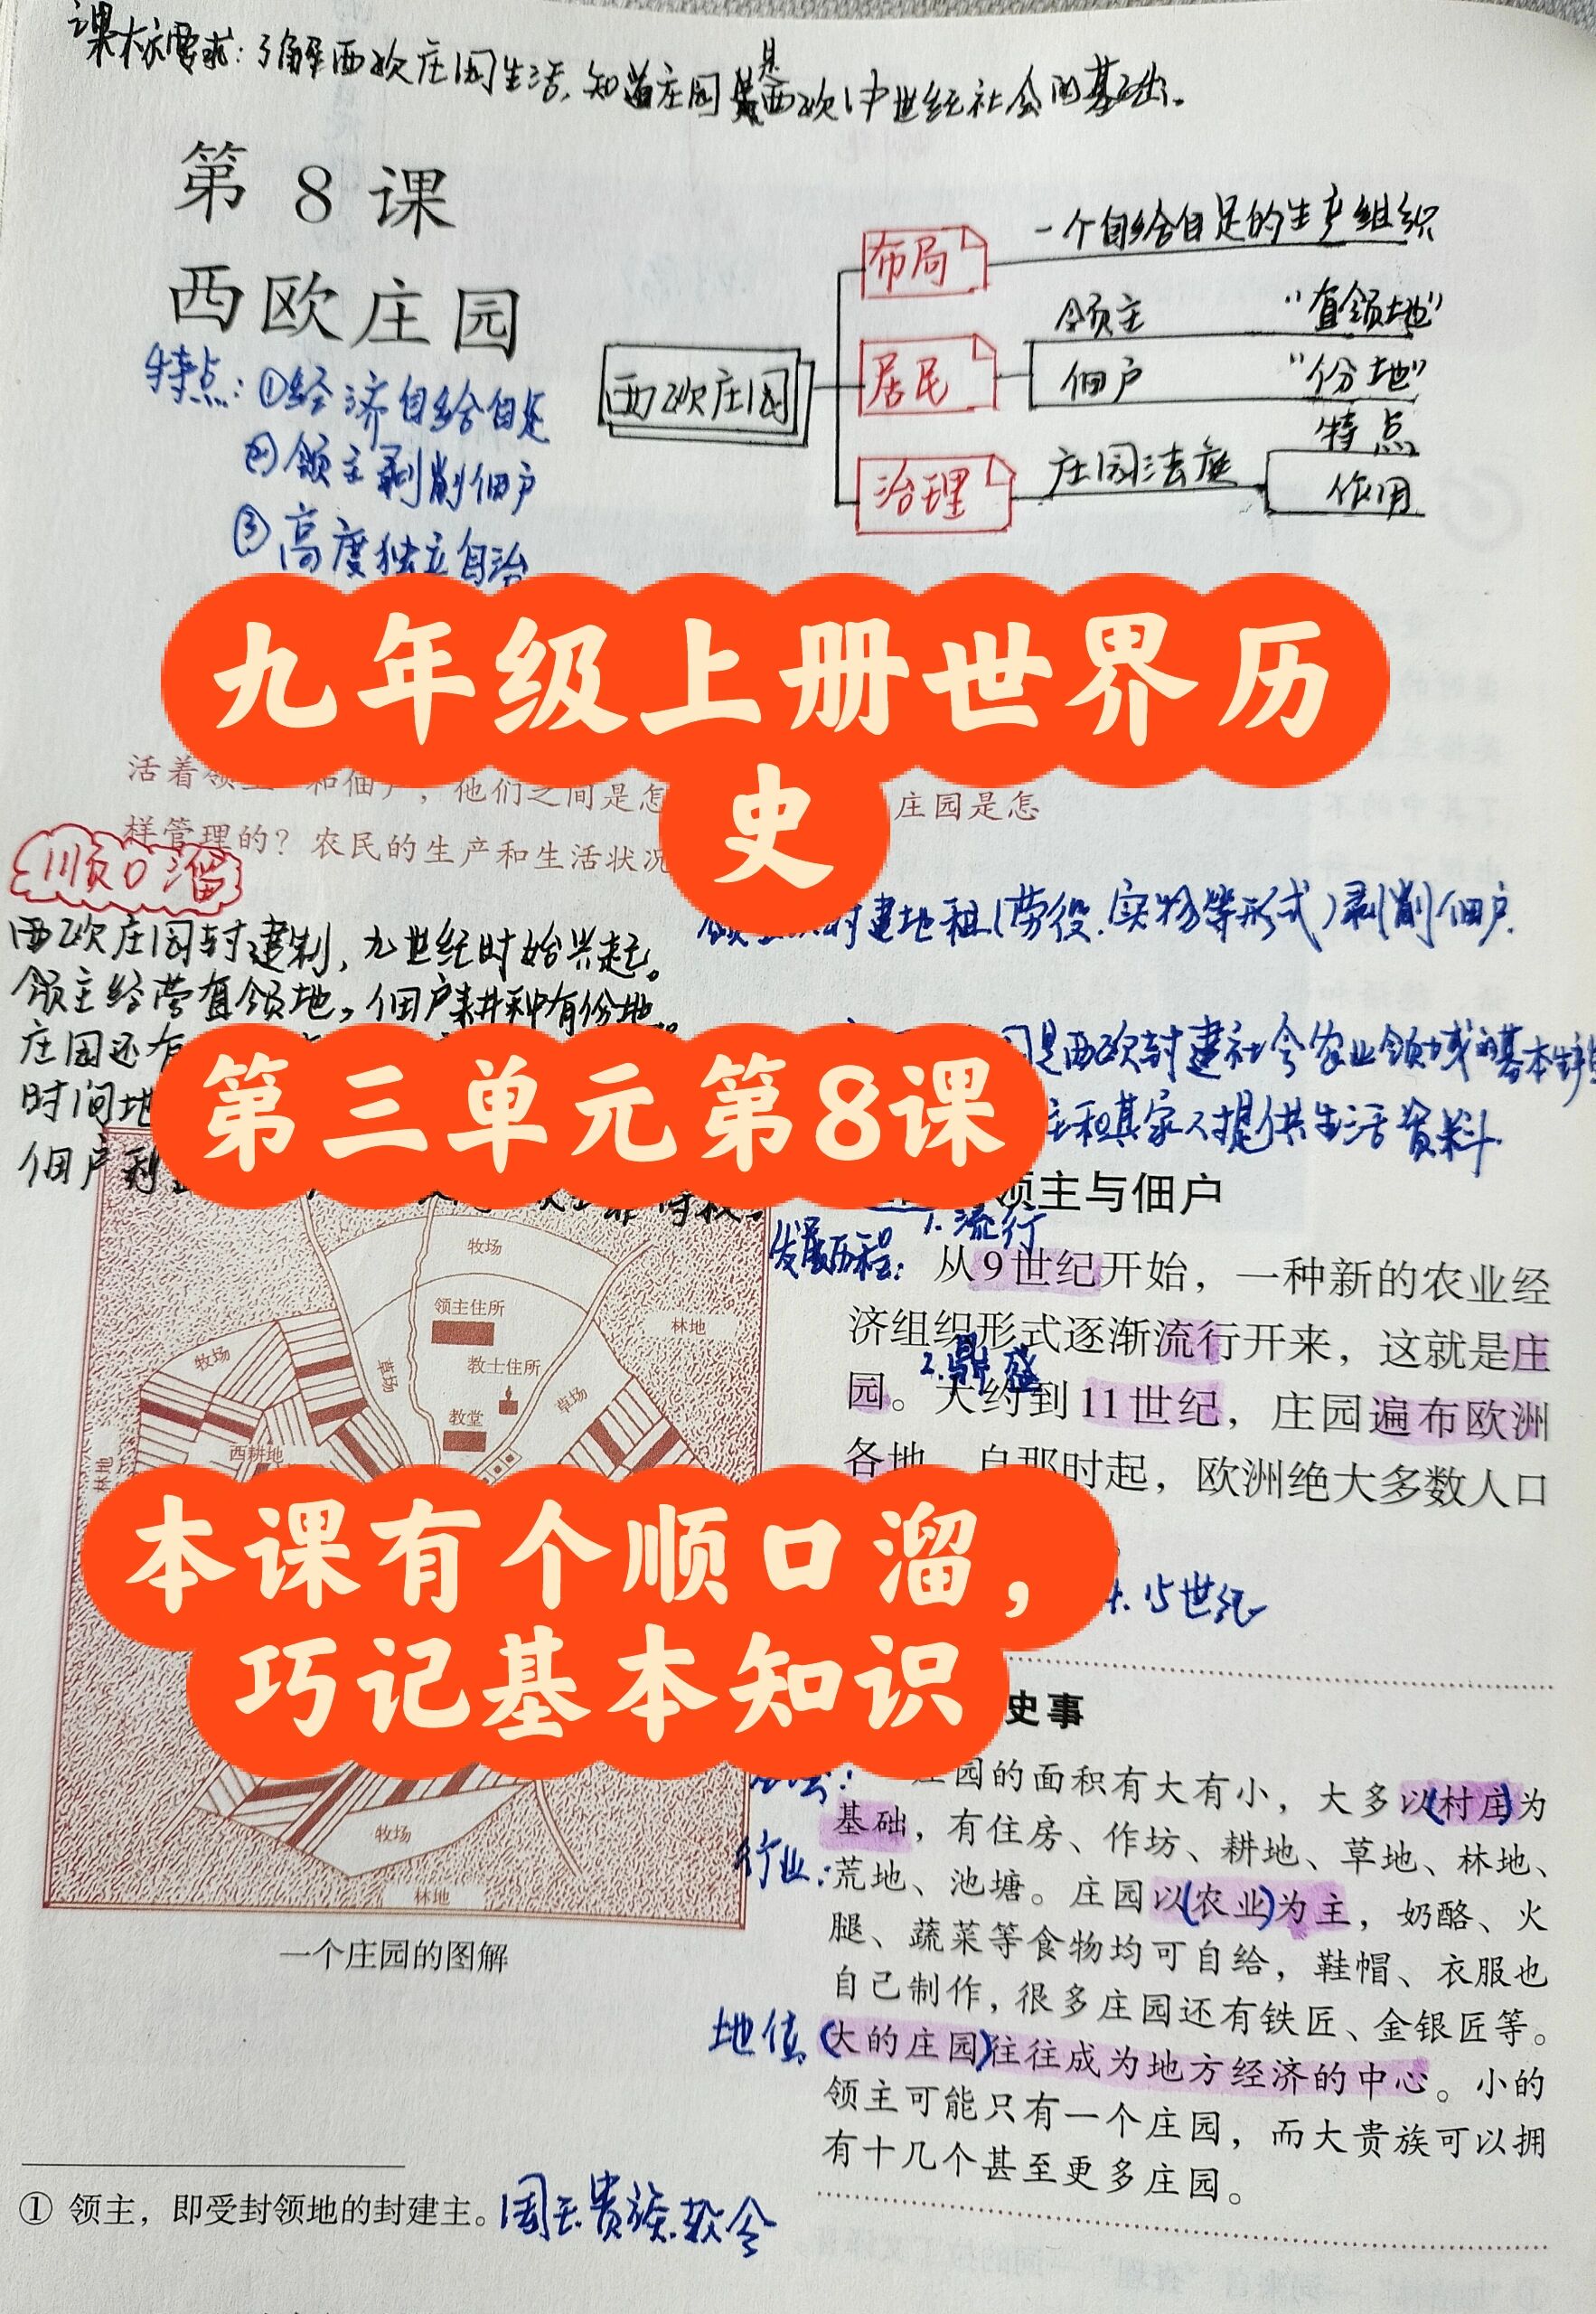 课标要求：了解西欧庄园生活，知道庄园是西欧中世纪社会的基础。
第 8 课
西欧庄园
特点：①经济自给自足
②领主剥削佃户
③高度独立自治
西欧庄园
布局
一个自给自足的生产组织
居民
领主 “直领地”
佃户 “份地”
治理
庄园法庭
特点
作用
九年级上册世界历
史
活着领主 和佃户，他们之间是怎
庄园是怎
样管理的？农民的生产和生活状况
顺口溜
西欧庄园封建制，九世纪时始兴起。
领主经营直领地，佃户耕种有份地。
庄园还有
时间地
佃户
封建地租（劳役、实物等形式）剥削佃户.
是西欧封建社会农业领域的基本
主和其家人提供生活资料.
第三单元第8课
领主与佃户
发展历程：
1.流行
从9世纪开始，一种新的农业经
济组织形式逐渐流行开来，这就是庄
2.鼎盛
园。大约到11世纪，庄园遍布欧洲
各地。自那时起，欧洲绝大多数人口
15世纪
牧场
领主住所
林地
牧场
草场
教士住所
草场
教堂
西耕地
林地
牧场
林地
本课有个顺口溜，
巧记基本知识
史事
庄园的面积有大有小，大多以(村庄)为
基础，有住房、作坊、耕地、草地、林地、
行业：
荒地、池塘。庄园以(农业)为主，奶酪、火
腿、蔬菜等食物均可自给，鞋帽、衣服也
自己制作，很多庄园还有铁匠、金银匠等。
地位
(大的庄园)往往成为地方经济的中心。小的
领主可能只有一个庄园，而大贵族可以拥
有十几个甚至更多庄园。
一个庄园的图解
① 领主，即受封领地的封建主。国王.贵族.教会